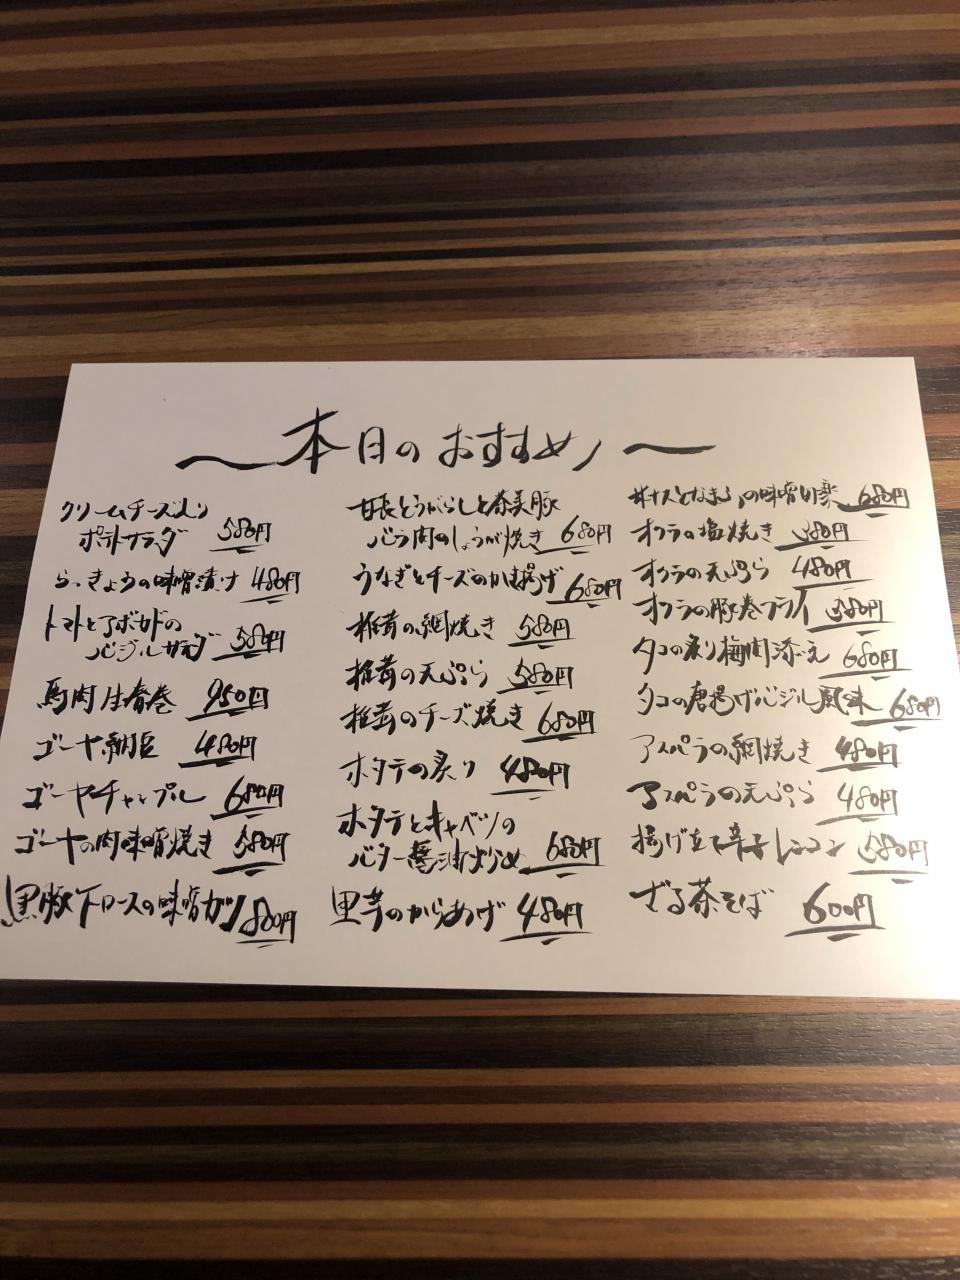 〜本日のおすすめ〜
クリームチーズ入り
ポテトサラダ 580円
らっきょうの味噌漬け 480円
トマトとアボカドの
バジルサラダ 580円
馬肉生春巻 950円
ゴーヤ納豆 480円
ゴーヤチャンプル 680円
ゴーヤの肉味噌焼き 580円
黒豚下ロースの味噌カツ 880円
甘長とうがらしと奈美豚
バラ肉のしょうが焼き 680円
うなぎとチーズのかき揚げ 680円
椎茸の網焼き 580円
椎茸の天ぷら 580円
椎茸のチーズ焼き 680円
ホタテの炙り 480円
ホタテとキャベツの
バター醤油炒め 680円
里芋のからあげ 480円
の味噌 680円
オクラの塩焼き 380円
オクラの天ぷら 480円
オクラの豚巻フライ 580円
タコの炙り梅肉添え 680円
タコの唐揚げバジル風味 680円
アスパラの網焼き 480円
アスパラの天ぷら 480円
揚げ立て辛子レンコン 580円
ざる茶そば 600円